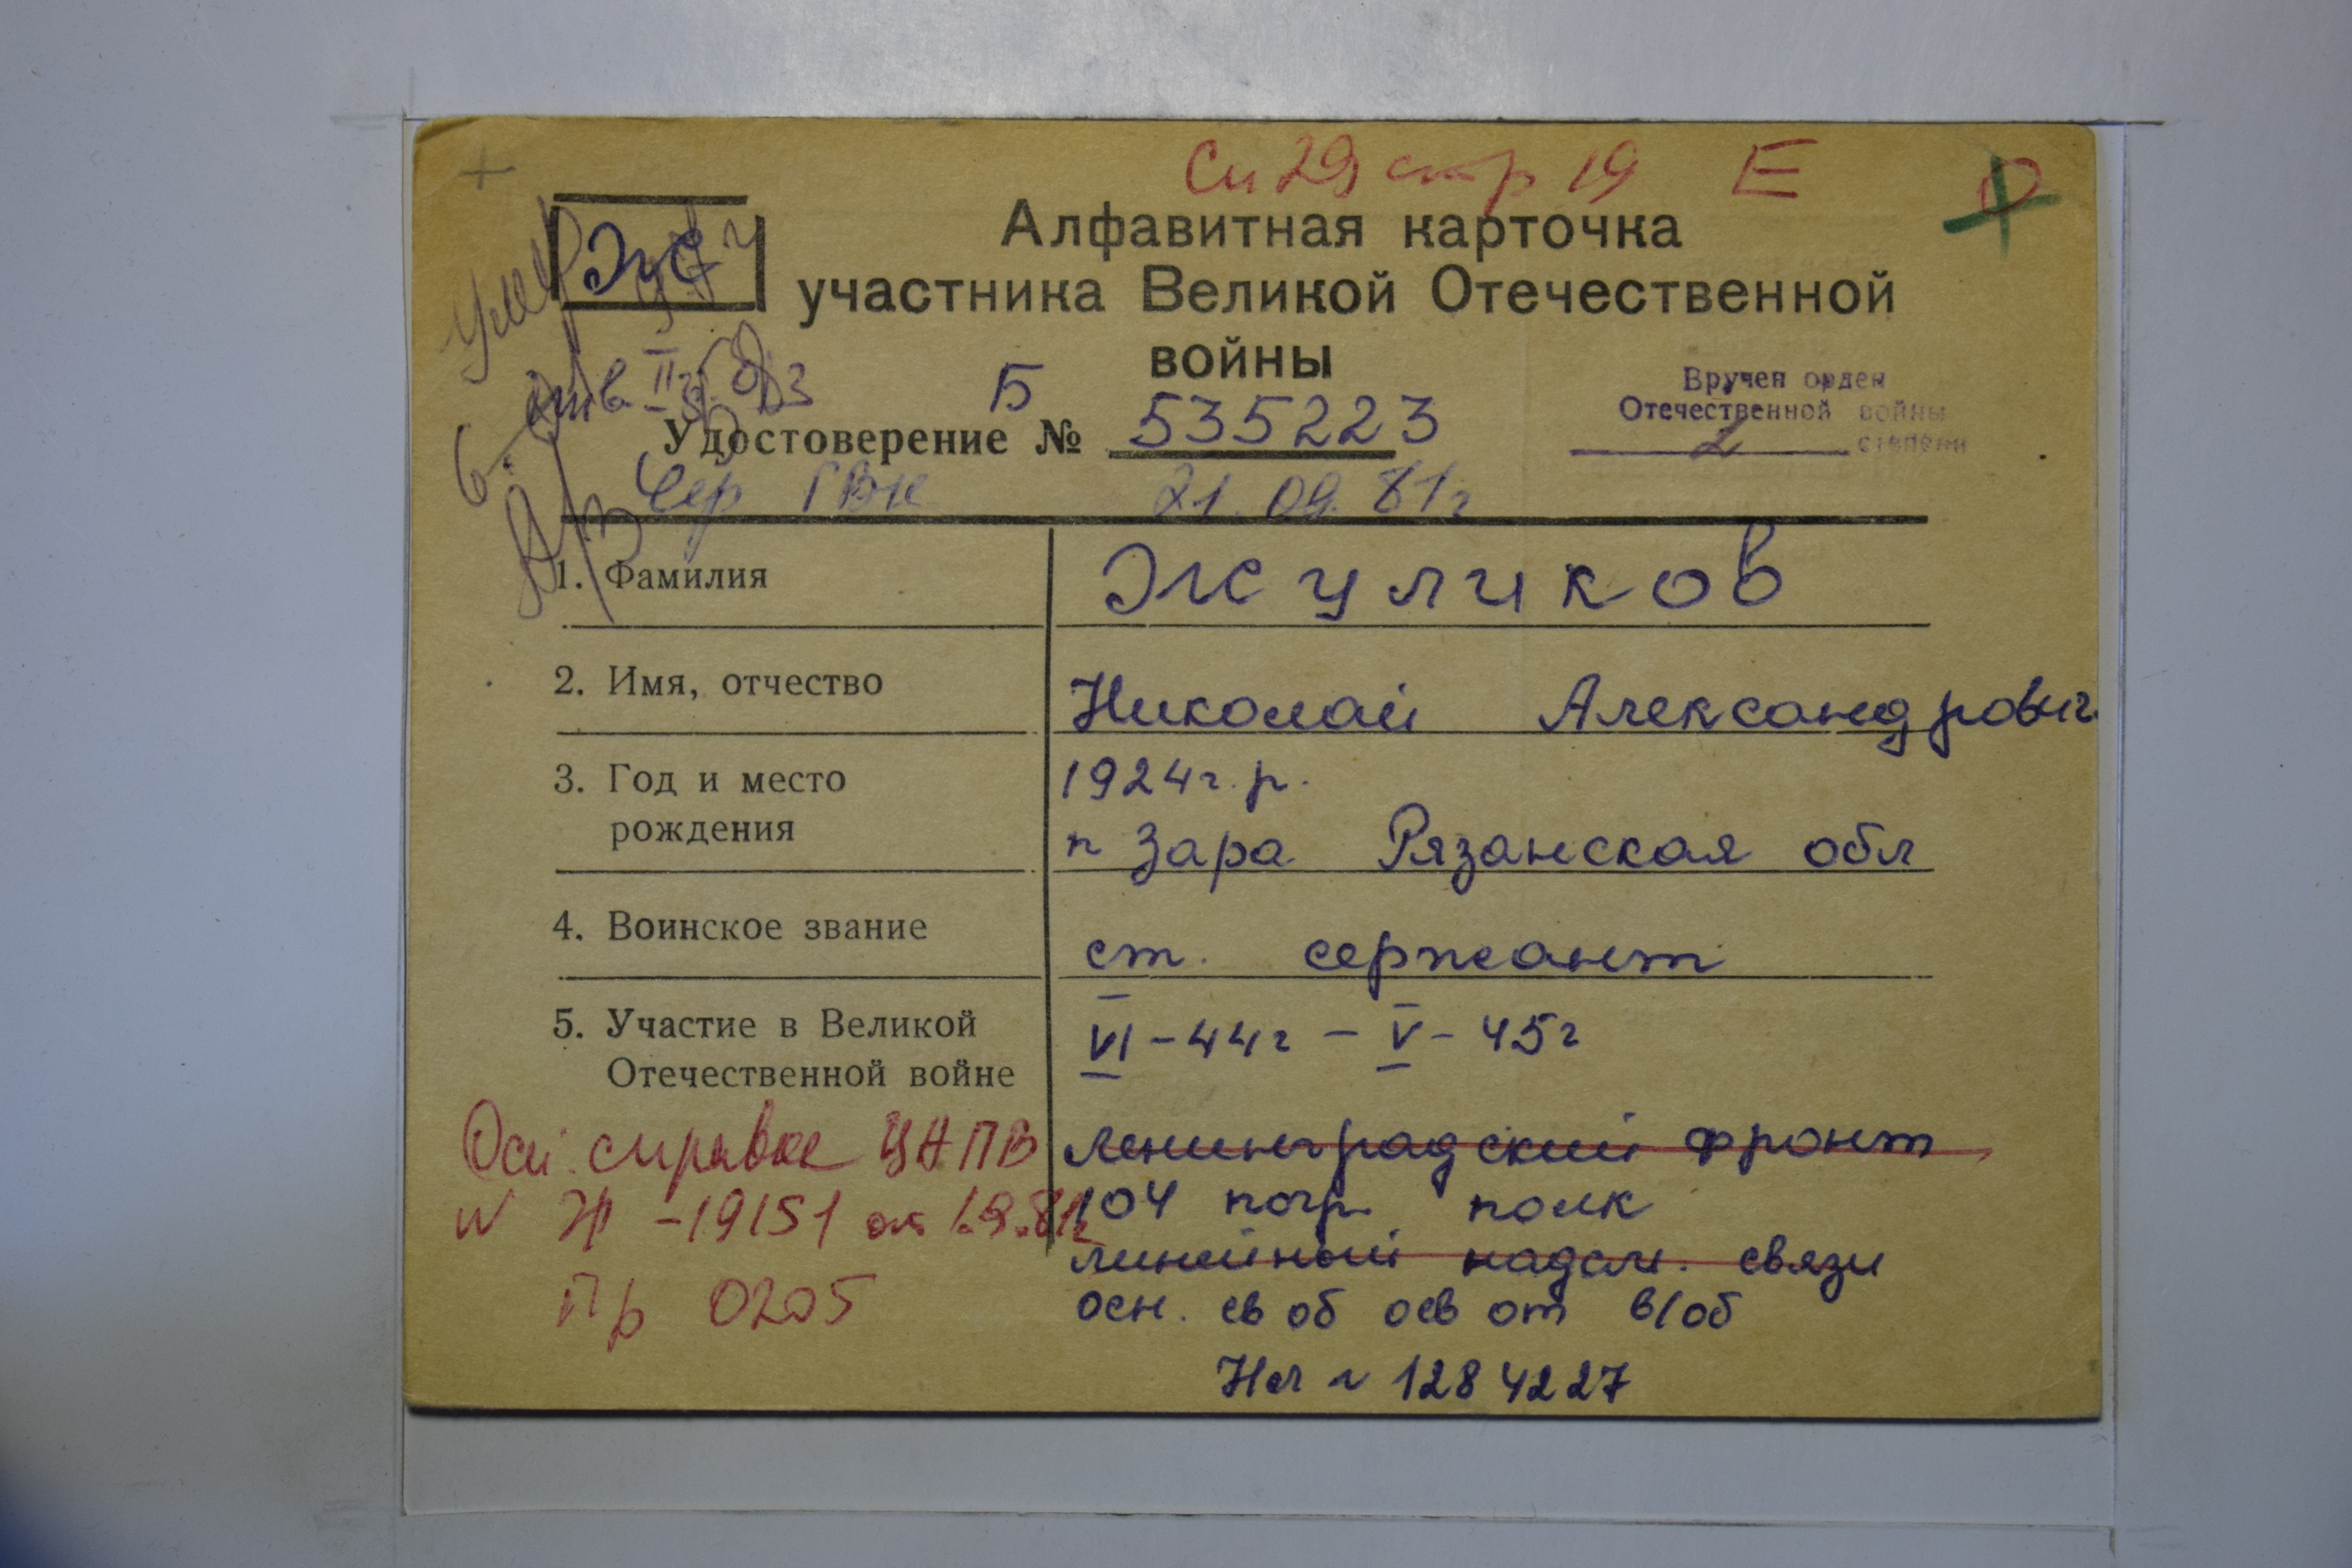 Сп 29 стр 19 Е
Жу
Алфавитная карточка
участника Великой Отечественной
войны
умер
Б
Удостоверение № 535223
Вручен орден
Отечественной войны
2 степени
Чер ГВК 21.09.81г
1. Фамилия Жуликов
2. Имя, отчество Николай Александрович
3. Год и место 1924г.р.
рождения п Зара Рязанская обл
4. Воинское звание ст. сержант
5. Участие в Великой VI-44г - V-45г
Отечественной войне
Осн. справка ЦАПВ Ленинградский фронт
N Ж-19151 от 1.9.81г 104 погр. полк
линейный надсм. связи
Пр 0205 осн. св об осв от в/об
НЛ N 1284227